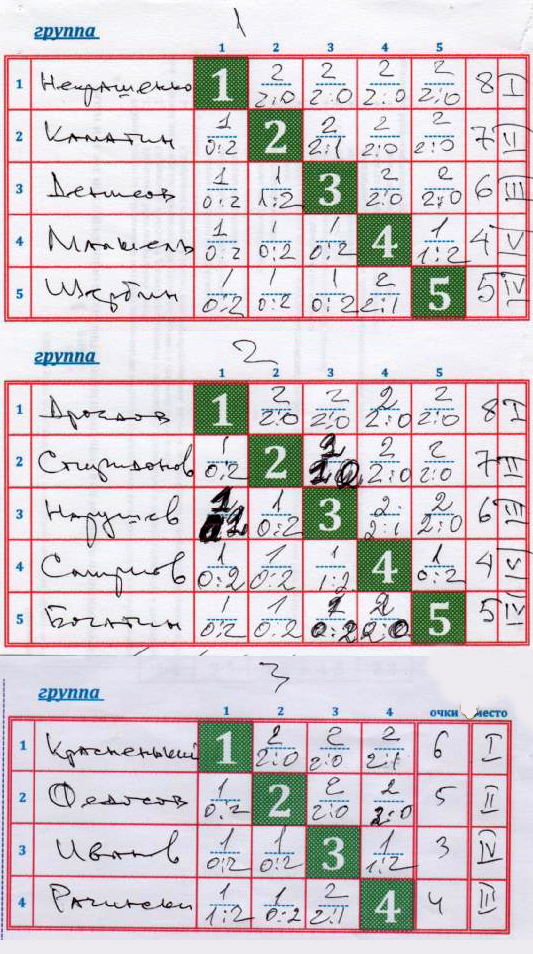 группа 1
1 2 3 4 5
1 Некрашенко 1 2 2:0 2 2:0 2 2:0 2 2:0 8 I
2 Каматин 1 0:2 2 2 2:1 2 2:0 2 2:0 7 II
3 Денисов 1 0:2 1 1:2 3 2 2:0 2 2:0 6 III
4 1 0:2 1 0:2 1 0:2 4 1 1:2 4 V
5 Щербин 1 0:2 1 0:2 1 0:2 2 2:1 5 5 IV
группа 2
1 2 3 4 5
1 Дроздов 1 2 2:0 2 2:0 2 2:0 2 2:0 8 I
2 Спиридонов 1 0:2 2 2 2:0 2 2:0 2 2:0 7 II
3 Нарушев 1 0:2 1 0:2 3 2 2:1 2 2:0 6 III
4 Смирнов 1 0:2 1 0:2 1 1:2 4 1 0:2 4 V
5 Богатин 1 0:2 1 0:2 1 0:2 2 2:0 5 5 IV
группа 3
1 2 3 4 очки место
1 Красненький 1 2 2:0 2 2:0 2 2:1 6 I
2 Федосов 1 0:2 2 2 2:0 2 2:0 5 II
3 Иванов 1 0:2 1 0:2 3 1 1:2 3 IV
4 Рачински 1 1:2 1 0:2 2 2:1 4 4 III